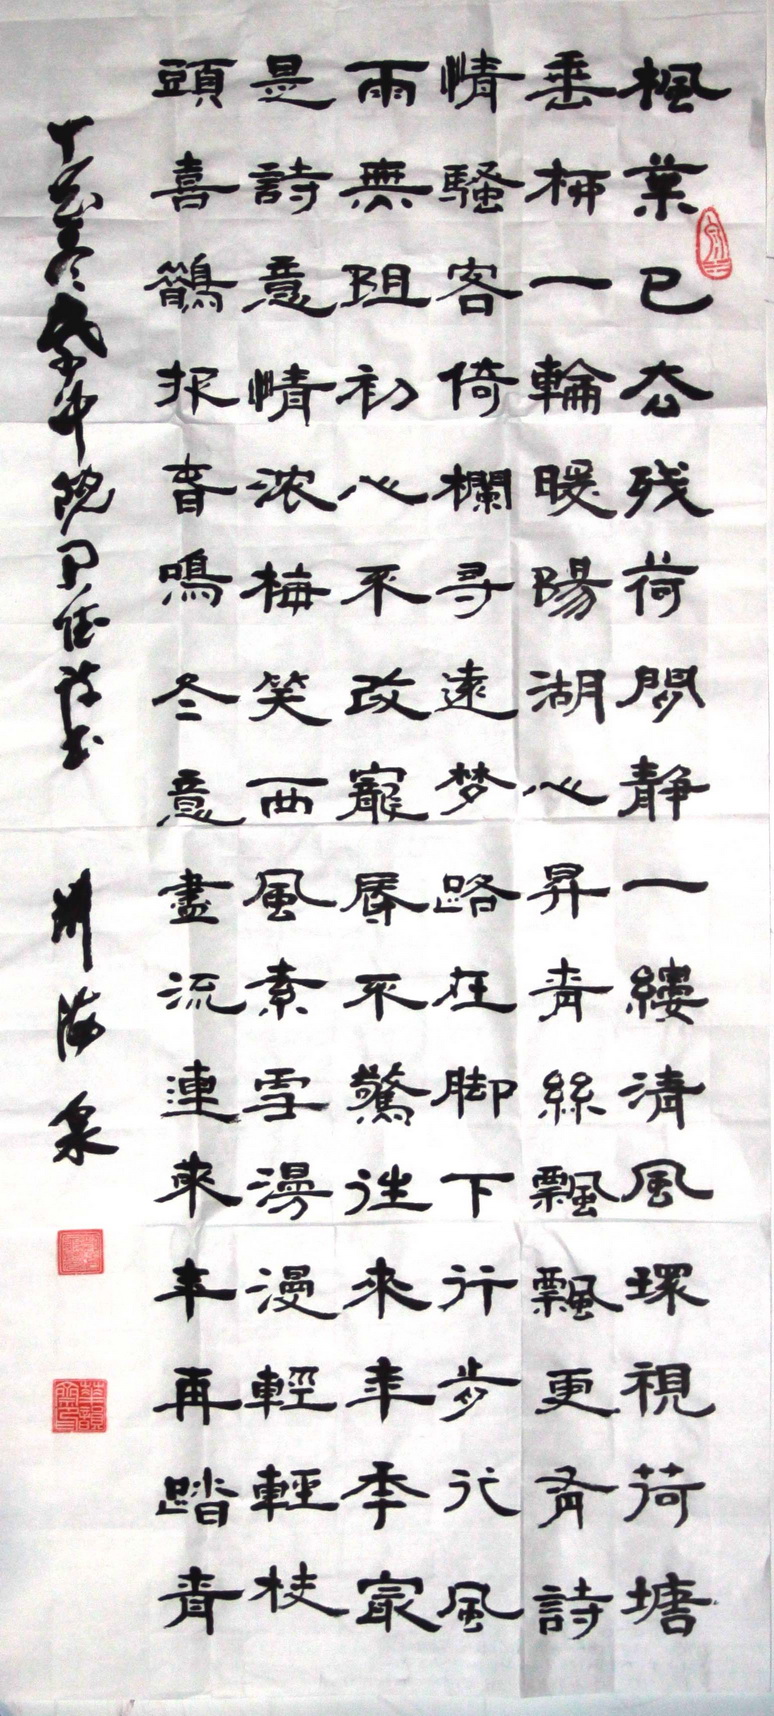 楓葉已去残荷間静一縷清風環視荷塘
垂柳一輪暖陽湖心昇青絲飄飄更有詩
情騷客倚欄尋遠梦路在脚下行步行風
雨無阻初心不改寵辱不驚往來年季最
是詩意情浓梅笑西風素雪漫漫輕輕枝
頭喜鵲报音鳴冬意盡流連來年再踏青
丁酉冬
海泉